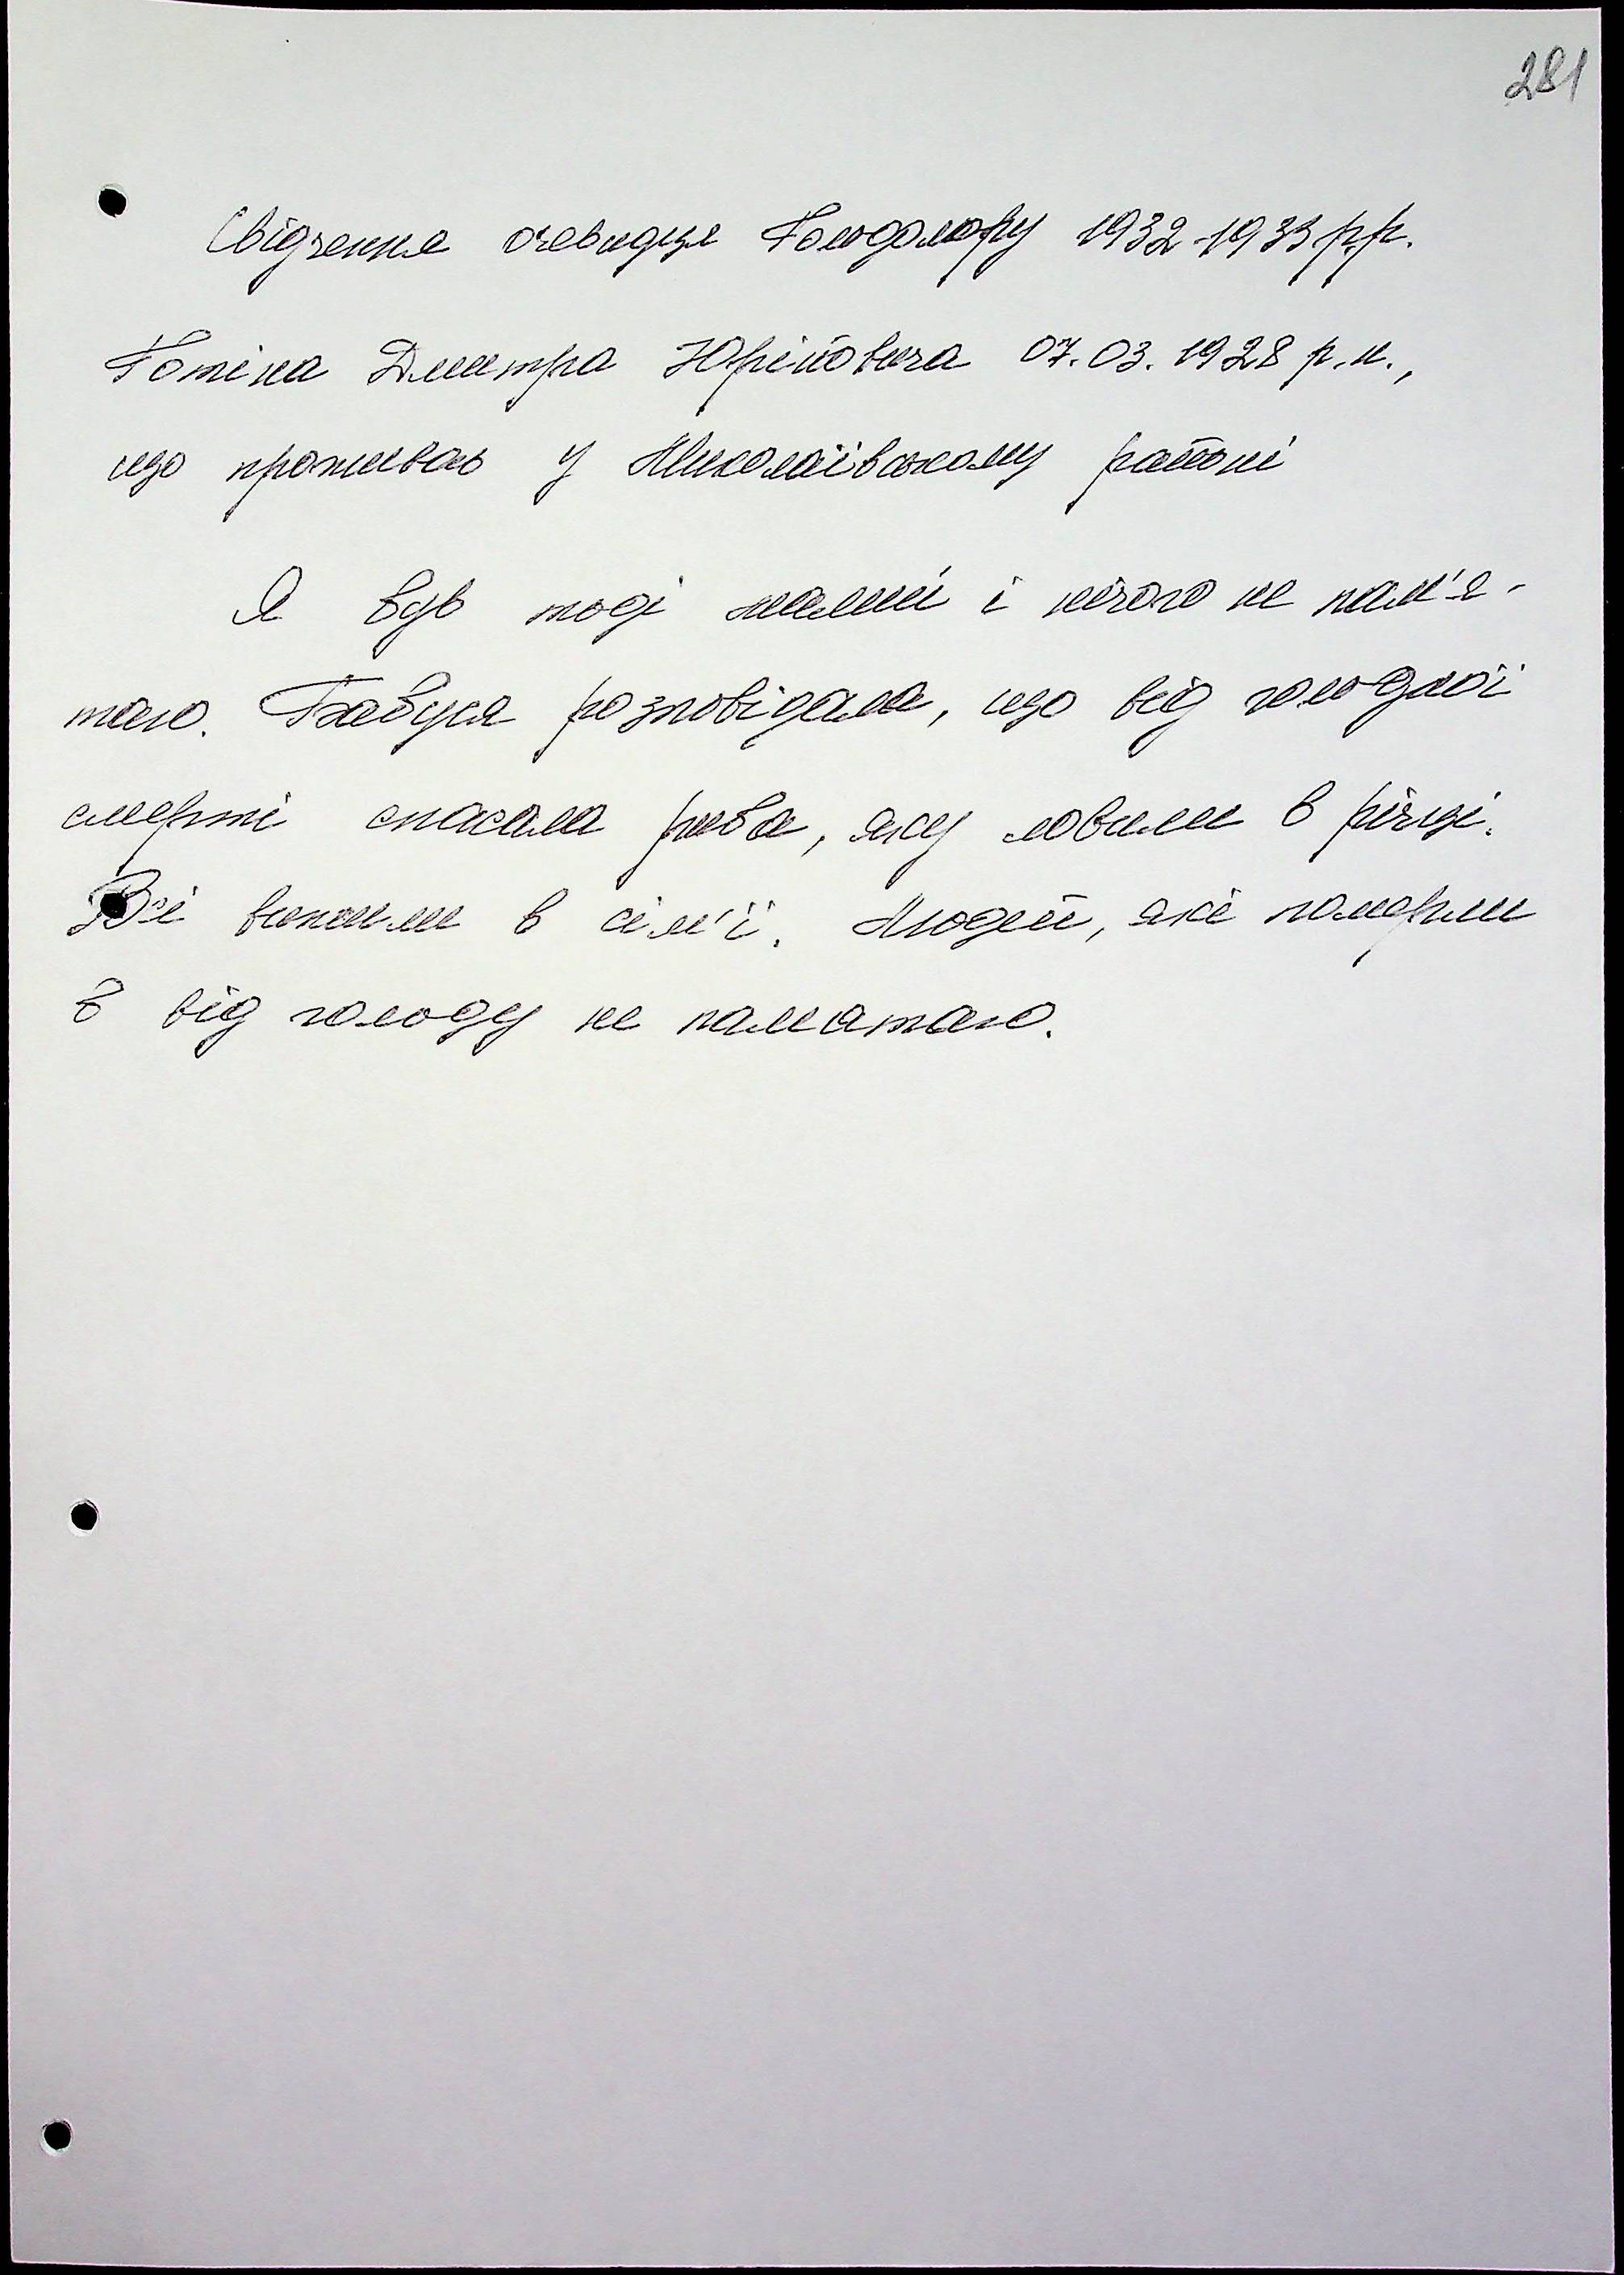 281
Свідчення очевидця Голодомору 1932-1933 р.р.
Готіна Дмитра Юрійовича 07.03.1928 р.н.,
що проживає у Миколаївському районі
Я був тоді малий і нічого не пам'я-
таю. Бабуся розповідала, що від голодної
смерті спасала риба, яку ловили в річці.
Всі вижили в сім'ї. Людей, які померли
в від голоду не паматаю.